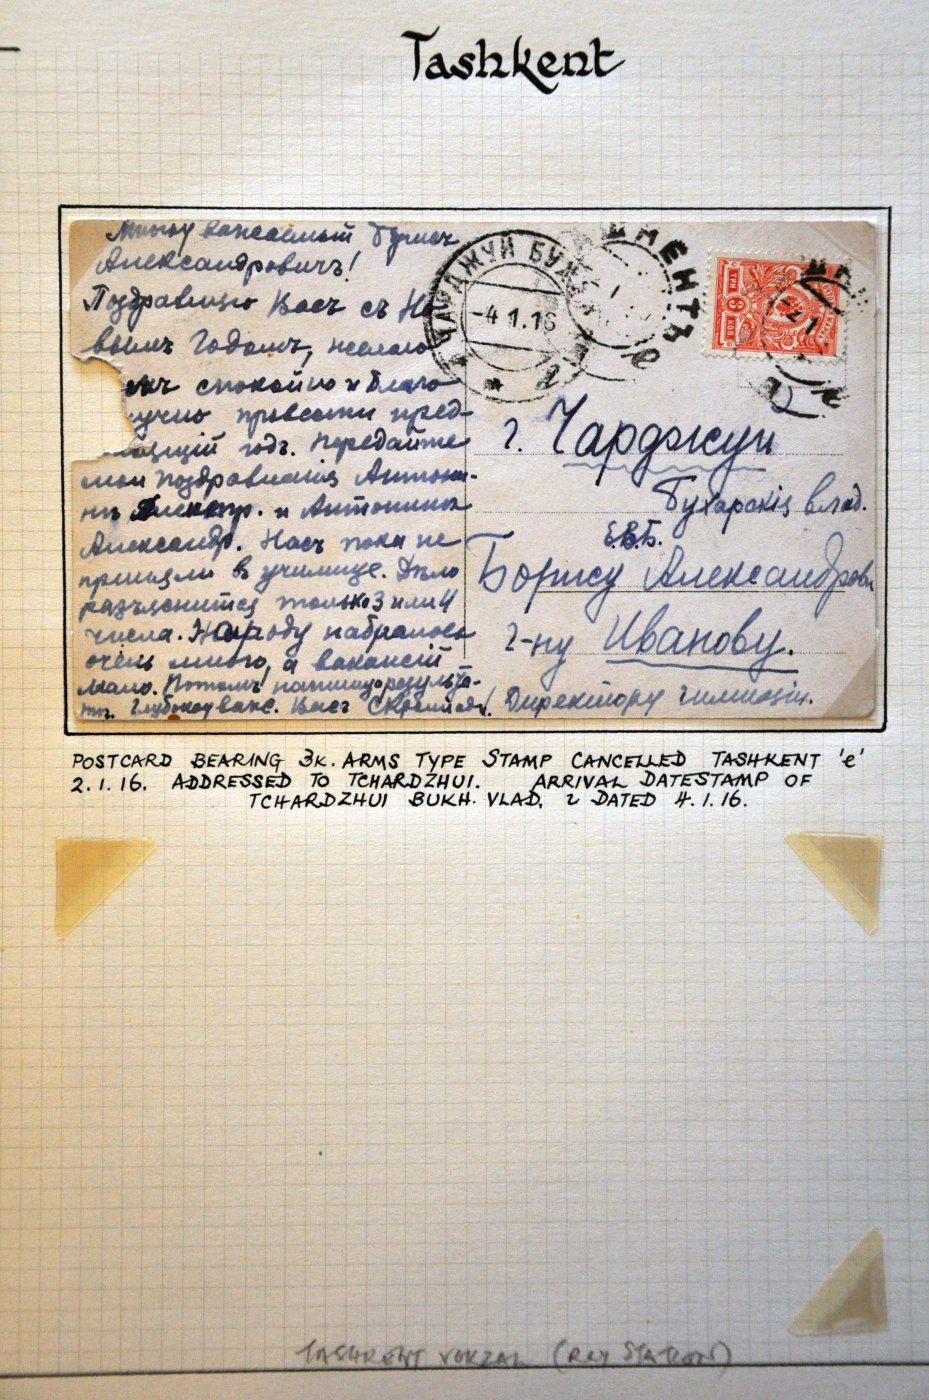 Tashkent
Много уважаемый Борисъ
Александровичъ!
Поздравляю Васъ съ Но
вымъ Годомъ, желаю
спокойно и благо
учно провести пред-
щій годъ. Передайте
мои поздравленія Антони-
нѣ Алекпр. и Антонинѣ
Александр. Насъ пока не
приняли в училище. Дѣло
разъяснится только 3 или 4
числа. Народу набралось
очень много, а вакансій
мало. Потомъ напишу о резуль̃та-
тѣ. Глубокоуваж. Васъ
ЧАРДЖУЙ БУХ
-4.1.16
г
ШКЕНТЪ
е
ТРИ
3
КОП
г. Чарджуй
Бухарскія влад.
Е.В.Б.
Борису Александрови
г-ну Иванову.
Директору гимназіи.
POSTCARD BEARING 3K. ARMS TYPE STAMP CANCELLED TASHKENT 'e'
2.1.16. ADDRESSED TO TCHARDZHUI. ARRIVAL DATESTAMP OF
TCHARDZHUI BUKH. VLAD. г DATED 4.1.16.
TASHKENT VOKZAL (RLY STATION)